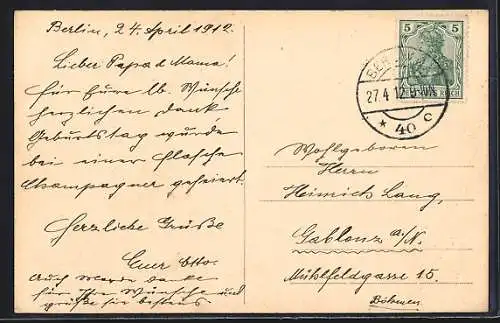 Berlin, 24. April 1912.
Lieber Papa & Mama!
Für Eure lb. Wünsche
herzlichen Dank
Geburtstag wurde
bei einer Flasche
Champagner gefeiert.
Herzliche Grüße
Euer Otto.
Auch meine danke
für Ihre Wünsche und
grüße sie bestens
5 5
BER
27.4.12.
* 40 c
DEUTSCHES REICH
Wohlgeboren
Herrn
Heinrich Lang,
Gablonz a./N.
Mühlfeldgasse 15.
Böhmen